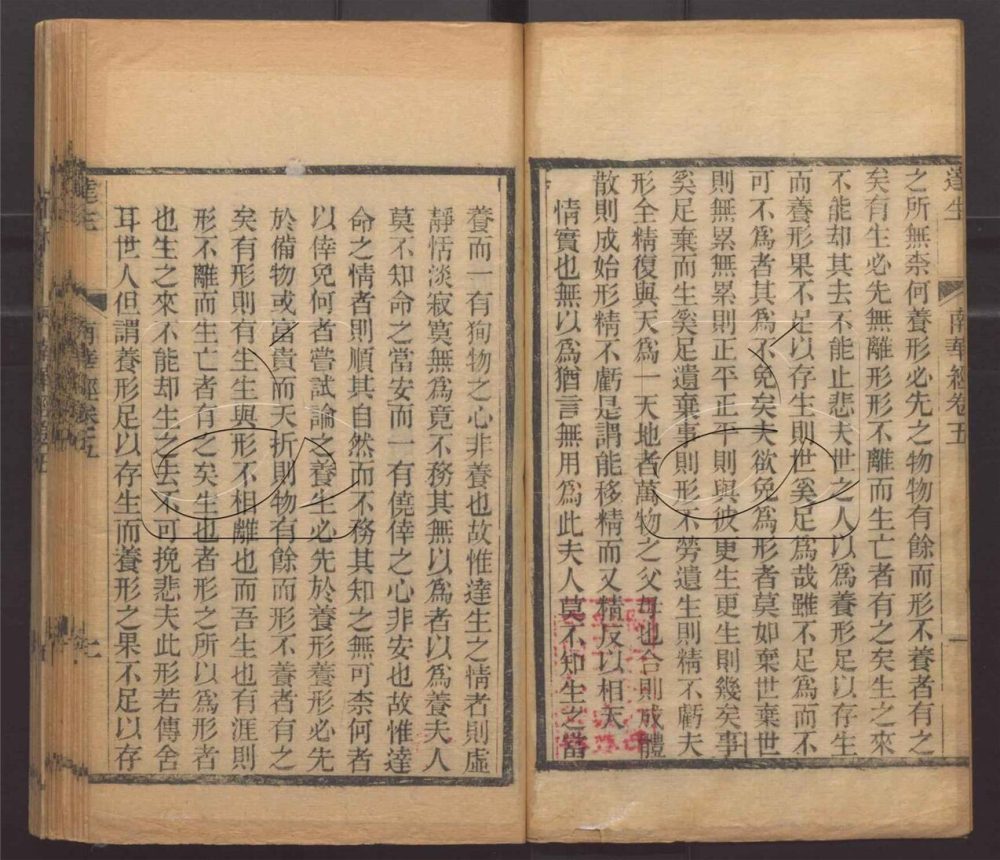 達生 南華經卷五 一
之所無柰何養形必先之物物有餘而形不養者有之
矣有生必先無離形形不離而生亡者有之矣生之來
不能却其去不能止悲夫世之人以爲養形足以存生
而養形果不足以存生則世奚足爲哉雖不足爲而不
可不爲者其爲不免矣夫欲免爲形者莫如棄世棄世
則無累無累則正平正平則與彼更生更生則幾矣事
奚足棄而生奚足遺棄事則形不勞遺生則精不虧夫
形全精復與天爲一天地者萬物之父母也合則成體
散則成始形精不虧是謂能移精而又精反以相天
情實也無以爲猶言無用爲此夫人莫不知生之當
養而一有狥物之心非養也故惟達生之情者則虛
靜恬淡寂寞無爲竟不務其無以爲者以爲養夫人
莫不知命之當安而一有僥倖之心非安也故惟達
命之情者則順其自然而不務其知之無可柰何者
以倖免何者嘗試論之養生必先於養形養形必先
於備物或富貴而夭折則物有餘而形不養者有之
矣有形則有生生與形不相離也而吾生也有涯則
形不離而生亡者有之矣生也者形之所以爲形者
也生之來不能却生之去不可挽悲夫此形若傳舍
耳世人但謂養形足以存生而養形之果不足以存
達生 南華經卷五